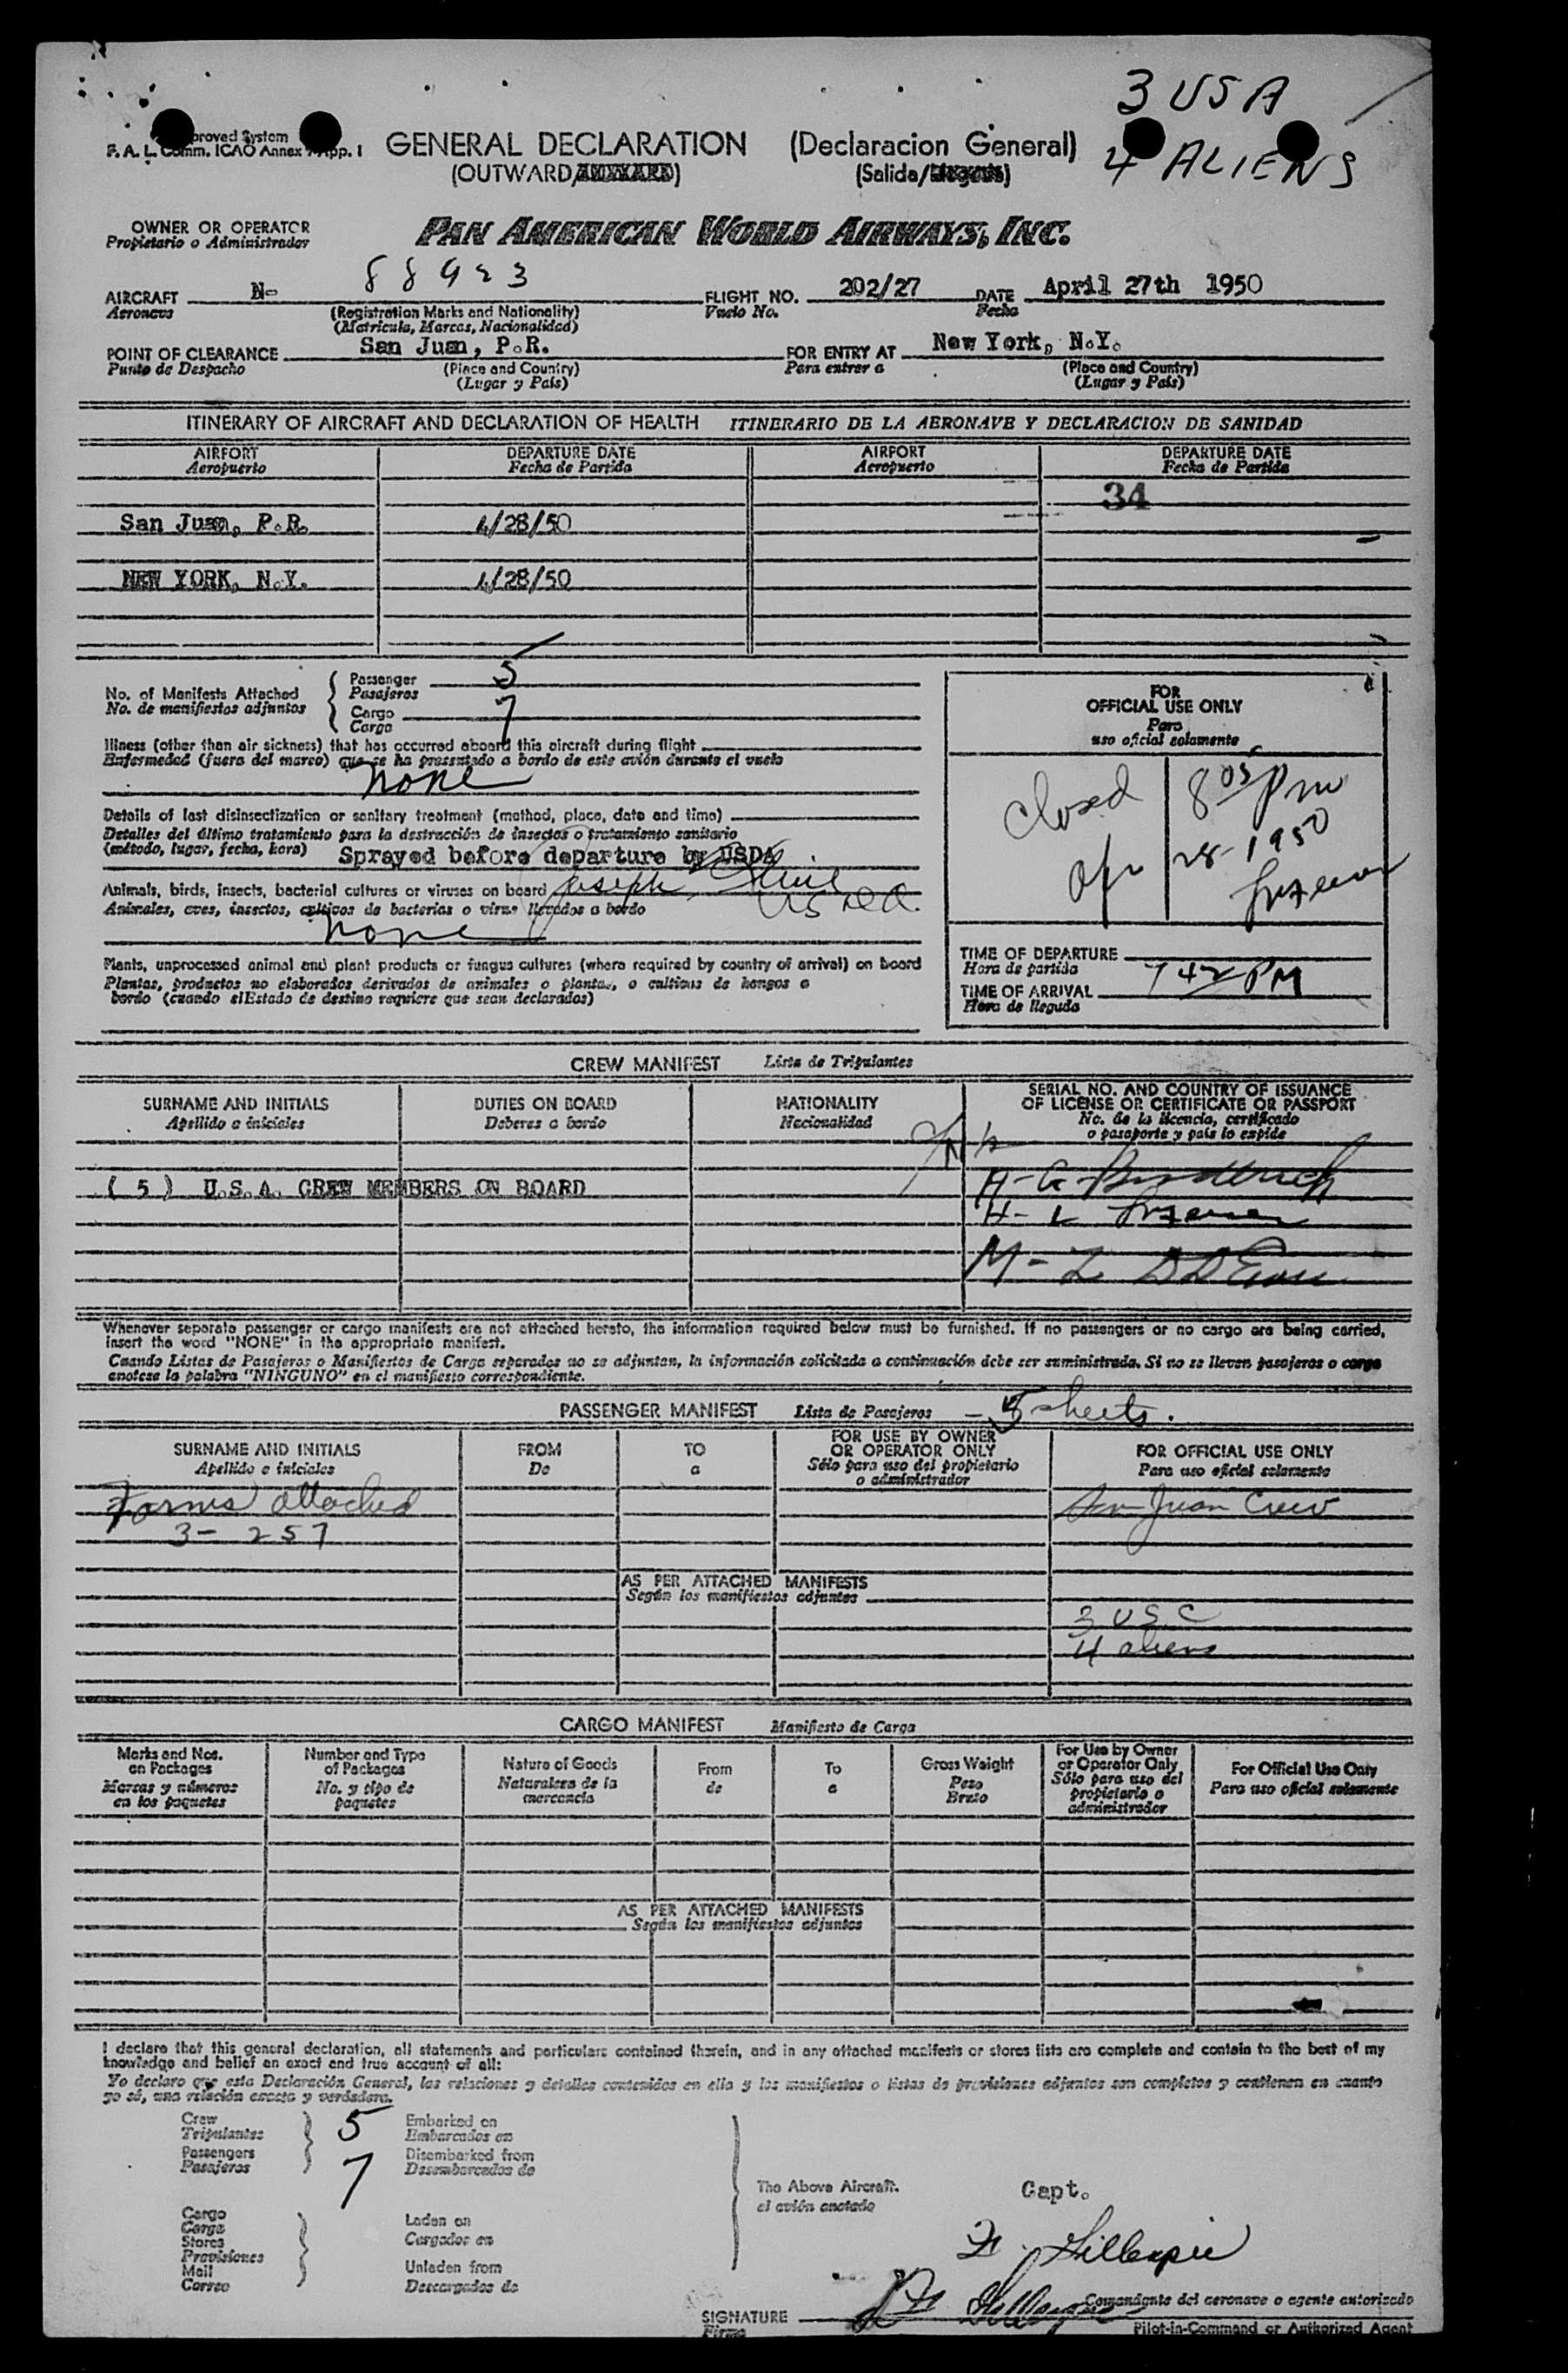 3 USA
4 ALIENS
proved System
F. A. L. Comm. ICAO Annex App. 1
GENERAL DECLARATION (Declaracion General)
(OUTWARD/ (Salida/
OWNER OR OPERATOR
Propietario o Administrador
PAN AMERICAN WORLD AIRWAYS, INC.
AIRCRAFT N- 88923 FLIGHT NO. 202/27 DATE April 27th 1950
Aeronave (Registration Marks and Nationality) Vuelo No. Fecha
(Matricula, Marcas, Nacionalidad)
POINT OF CLEARANCE San Juan, P.R. FOR ENTRY AT New York, N.Y.
Punto de Despacho (Place and Country) Para entrar a (Place and Country)
(Lugar y País) (Lugar y País)
ITINERARY OF AIRCRAFT AND DECLARATION OF HEALTH ITINERARIO DE LA AERONAVE Y DECLARACION DE SANIDAD
AIRPORT DEPARTURE DATE AIRPORT DEPARTURE DATE
Aeropuerto Fecha de Partida Aeropuerto Fecha de Partida
34
San Juan, P.R. 4/28/50
NEW YORK, N.Y. 4/28/50
No. of Manifests Attached Passenger 5
No. de manifiestos adjuntos Pasajeros
Cargo 7
Carga
Illness (other than air sickness) that has occurred aboard this aircraft during flight
Enfermedad (fuera del mareo) que se ha presentado a bordo de este avión durante el vuelo
none
Details of last disinsectization or sanitary treatment (method, place, date and time)
Detalles del último tratamiento para la destrucción de insectos o tratamiento sanitario
(método, lugar, fecha, hora) Sprayed before departure by USDA
Joseph
Animals, birds, insects, bacterial cultures or viruses on board
USDA
Animales, aves, insectos, cultivos de bacterias o virus llevados a bordo
none
Plants, unprocessed animal and plant products or fungus cultures (where required by country of arrival) on board
Plantas, productos no elaborados derivados de animales o plantas, o cultivos de hongos a
bordo (cuando el Estado de destino requiere que sean declarados)
FOR
OFFICIAL USE ONLY
Para
uso oficial solamente
closed 8 05 pm
Apr 28-1950
TIME OF DEPARTURE
Hora de partida
7 42 PM
TIME OF ARRIVAL
Hora de llegada
CREW MANIFEST Lista de Tripulantes
SURNAME AND INITIALS DUTIES ON BOARD NATIONALITY SERIAL NO. AND COUNTRY OF ISSUANCE
OF LICENSE OR CERTIFICATE OR PASSPORT
Apellido e iniciales Deberes a bordo Nacionalidad No. de la licencia, certificado
o pasaporte y país lo expide
( 5 ) U.S.A. CREW MEMBERS ON BOARD
Whenever separate passenger or cargo manifests are not attached hereto, the information required below must be furnished. If no passengers or no cargo are being carried,
insert the word "NONE" in the appropriate manifest.
Cuando Listas de Pasajeros o Manifiestos de Carga separados no se adjuntan, la información solicitada a continuación debe ser suministrada. Si no se llevan pasajeros o carga
anotese la palabra "NINGUNO" en el manifiesto correspondiente.
PASSENGER MANIFEST Lista de Pasajeros - 5 sheets.
SURNAME AND INITIALS FROM TO FOR USE BY OWNER
OR OPERATOR ONLY FOR OFFICIAL USE ONLY
Apellido e iniciales De a Sólo para uso del propietario
o administrador Para uso oficial solamente
Forms attached San Juan Crew
3- 257
AS PER ATTACHED MANIFESTS
Según los manifiestos adjuntos
3 USC
4 aliens
CARGO MANIFEST Manifiesto de Carga
Marks and Nos.
on Packages
Marcas y números
en los paquetes
Number and Type
of Packages
No. y tipo de
paquetes
Nature of Goods
Naturaleza de la
mercancia
From
de
To
a
Gross Weight
Peso
Bruto
For Use by Owner
or Operator Only
Sólo para uso del
propietario o
administrador
For Official Use Only
Para uso oficial solamente
AS PER ATTACHED MANIFESTS
Según los manifiestos adjuntos
I declare that this general declaration, all statements and particulars contained therein, and in any attached manifests or stores lists are complete and contain to the best of my
knowledge and belief an exact and true account of all:
Yo declaro que esta Declaración General, las relaciones y detalles contenidos en ella y los manifiestos o listas de provisiones adjuntos son completos y contienen en cuanto
yo sé, una relación exacta y verdadera.
Crew 5 Embarked on
Tripulantes Embarcados en
Passengers 7 Disembarked from
Pasajeros Desembarcados de
The Above Aircraft.
el avión anotado
Cargo
Carga
Stores
Provisiones
Mail
Correo
Laden on
Cargados en
Unladen from
Descargados de
Capt.
Gillespie
Comandante del aeronave o agente autorizado
SIGNATURE
Firma
Pilot-in-Command or Authorized Agent